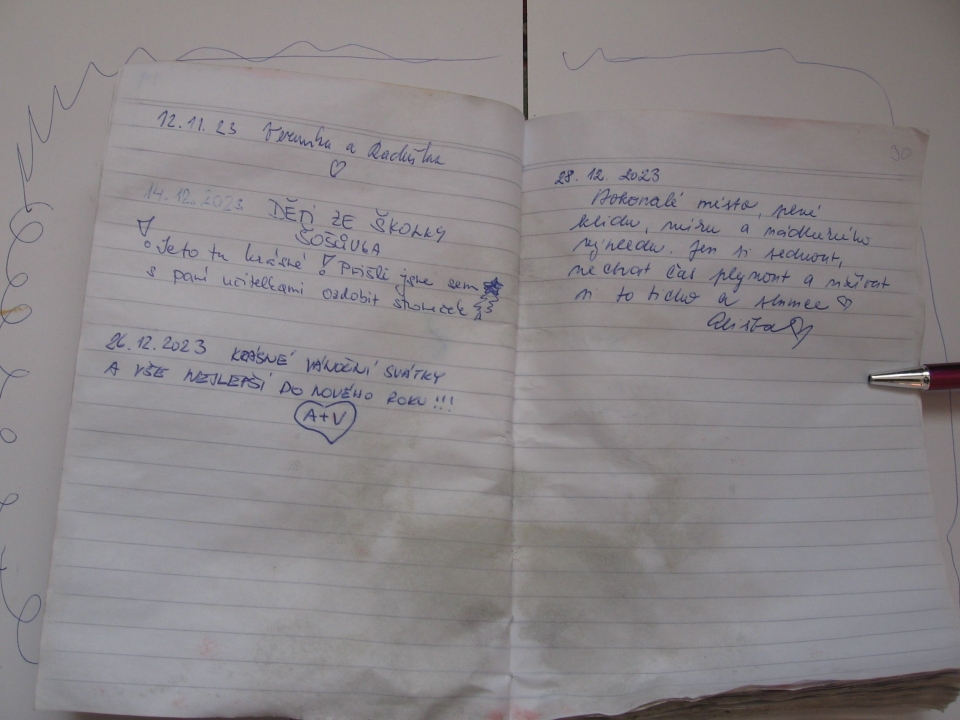 12.11.23 Verunka a Raduška
♡
14.12.2023 DĚTI ZE ŠKOLKY
ŠOŠŮVKA
Jeto tu krásné! Přišli jsme sem
s paní učitelkami ozdobit stromeček
26.12.2023 KRÁSNÉ VÁNOČNÍ SVÁTKY
A VŠE NEJLEPŠÍ DO NOVÉHO ROKU!!!
A+V
30
28. 12. 2023
Dokonalé místo, plné
klidu, míru a nádherného
výhledu. Jen si sednout,
nechat čas plynout a užívat
si to ticho a slunce ♡